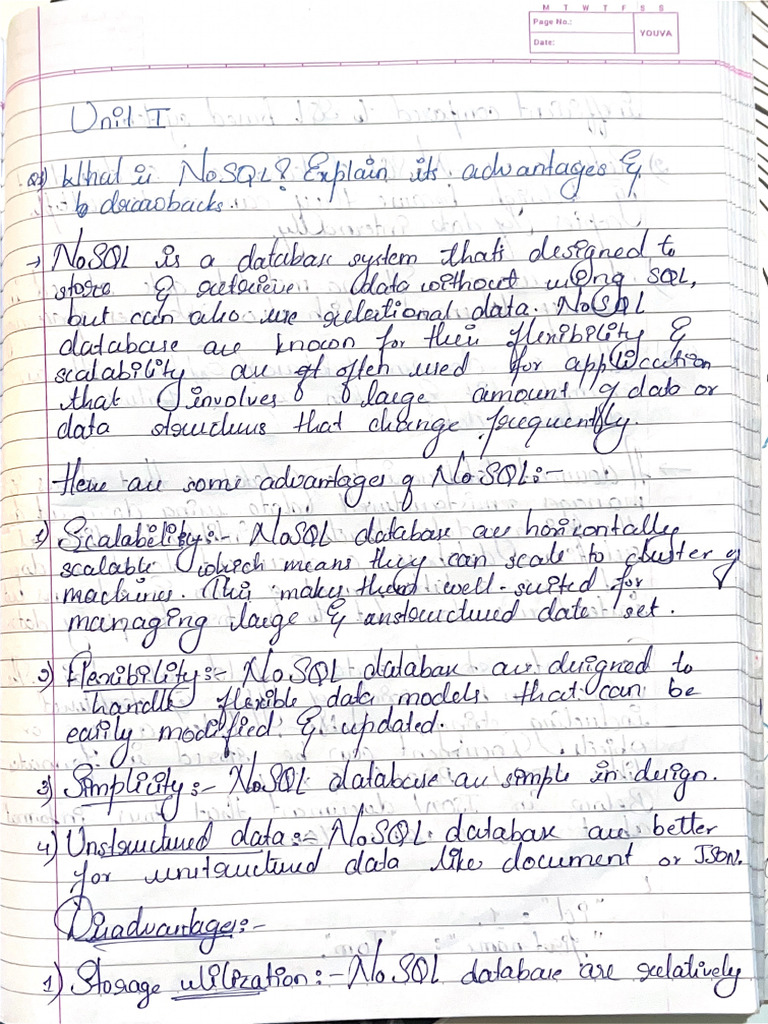 M T W T F S S
Page No.:
Date:
YOUVA
Unit I
Q1) What is NoSQL? Explain its advantages &
drawbacks.
→ NoSQL is a database system that's designed to
store & retrieve data without using SQL,
but can also use relational data. NoSQL
database are known for their flexibility &
scalability are often used for application
that involves large amount of data or
data structures that change frequently.
Here are some advantages of NoSQL:-
1) Scalability:- NoSQL database are horizontally
scalable which means they can scale to cluster of
machines. This makes them well-suited for
managing large & unstructured data set.
2) Flexibility:- NoSQL database are designed to
handle flexible data models that can be
easily modified & updated.
3) Simplicity:- NoSQL database are simple in design.
4) Unstructured data:- NoSQL database are better
for unstructured data like document or JSON.
Disadvantage:-
1) Storage utilization:- NoSQL database are relatively